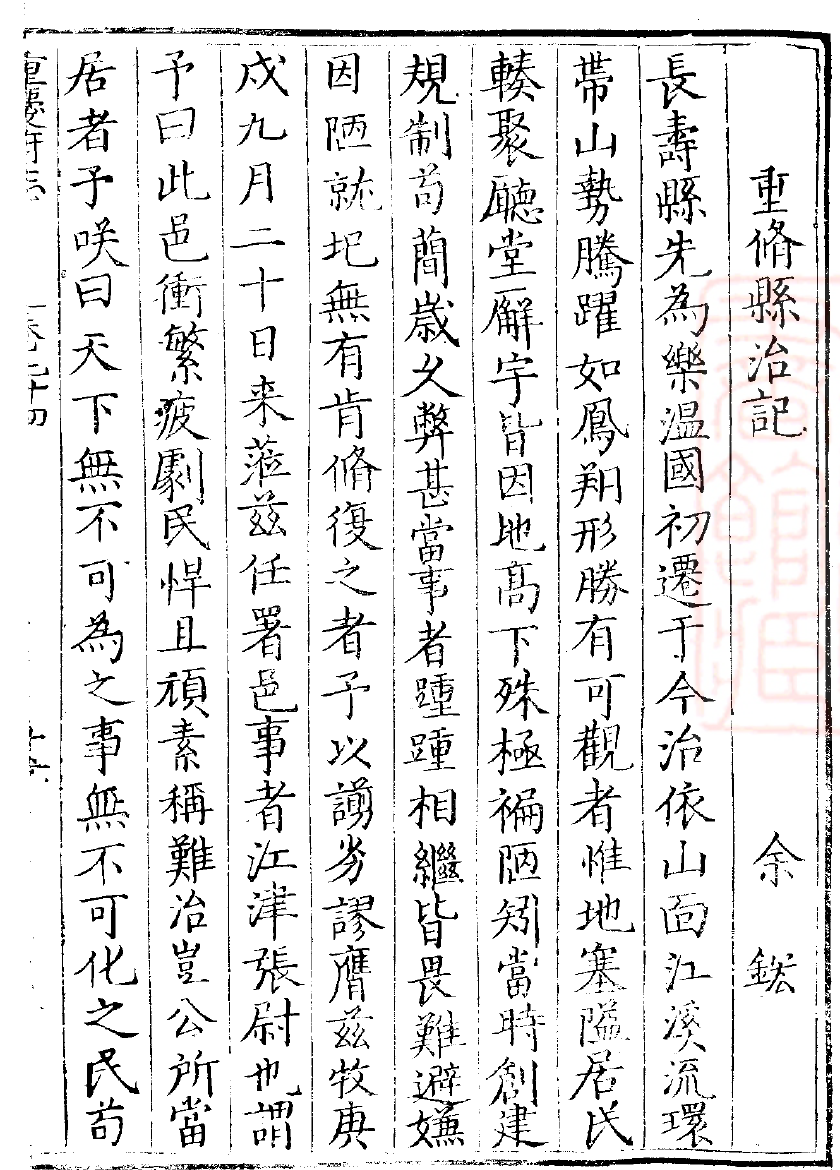 重脩縣治記　余鋐
長壽縣先為樂温國初遷于今治依山面江溪流環
帶山勢騰躍如鳳翔形勝有可觀者惟地塞隘居民
輳聚廳堂廨宇皆因地高下殊極褊陋矧當時創建
規制苟簡歲久弊甚當事者踵踵相繼皆畏難避嫌
因陋就圮無有肯脩復之者予以謭劣謬膺兹牧庚
戌九月二十日来蒞兹任署邑事者江津張尉也謂
予曰此邑衝繁疲劇民悍且頑素稱難治豈公所當
居者予咲曰天下無不可為之事無不可化之民苟
重慶府志　卷九十四